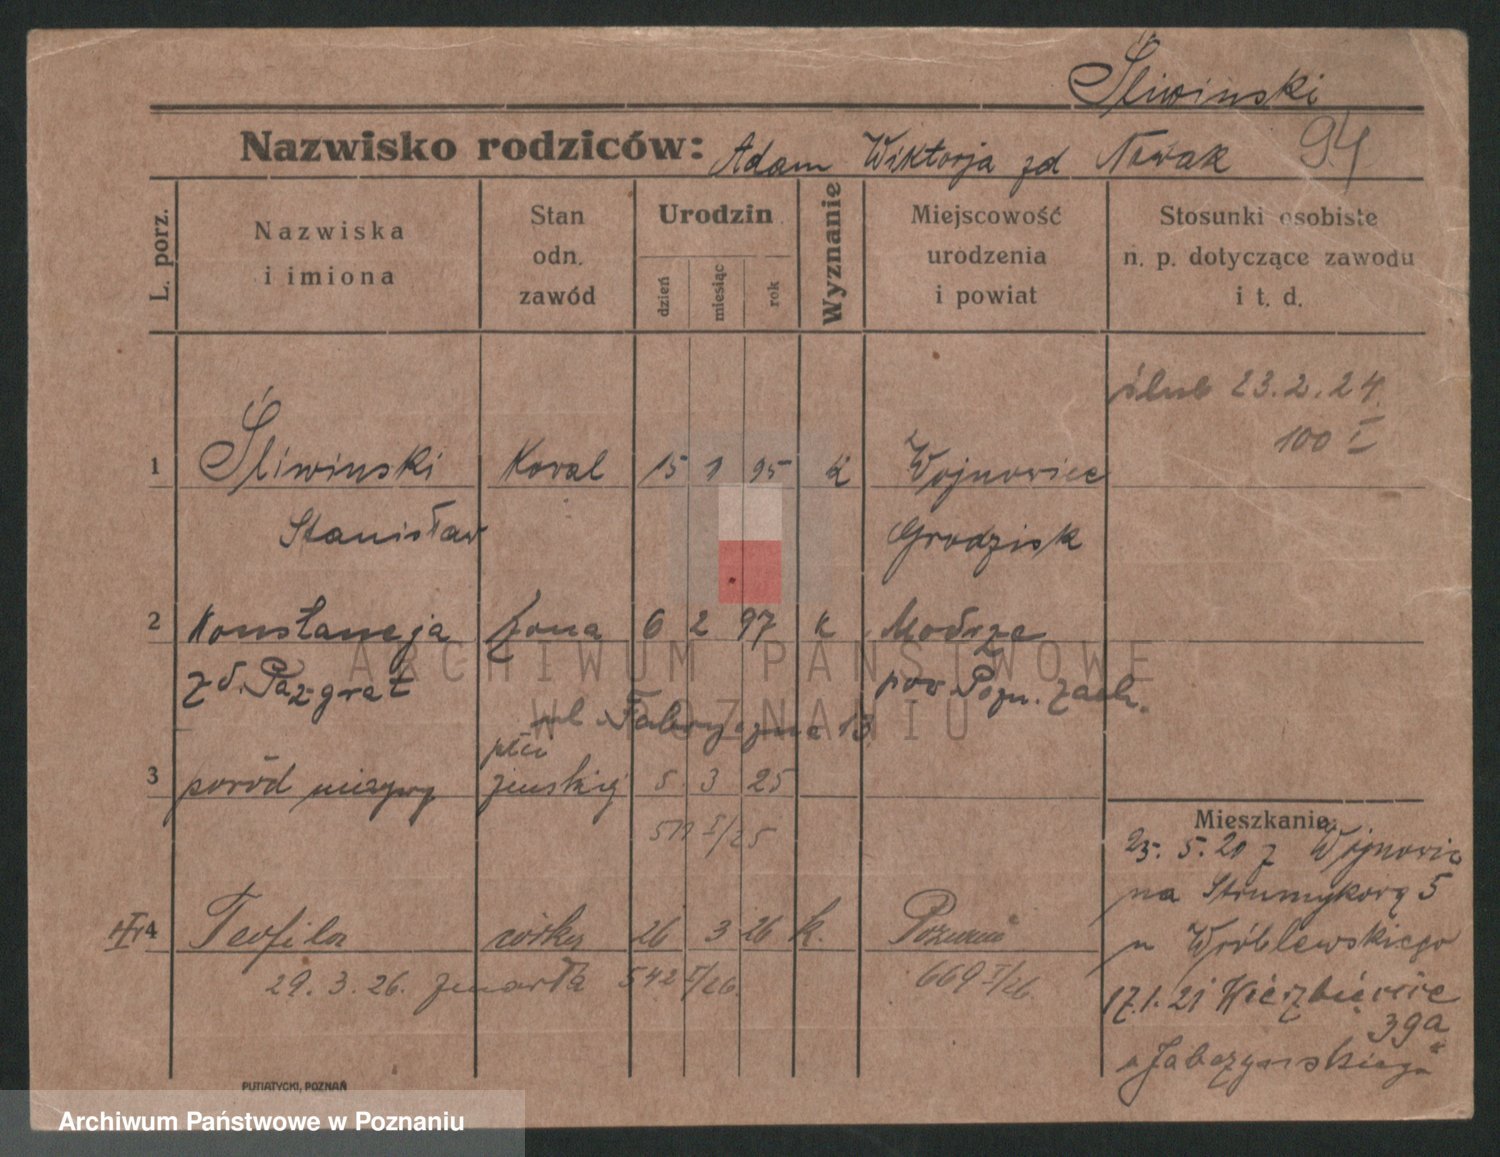 Śliwinski
Nazwisko rodziców: Adam Wiktorja zd Nowak 94
L. porz.
Nazwiska
i imiona
Stan
odn.
zawód
Urodzin
dzień
miesiąc
rok
Wyznanie
Miejscowość
urodzenia
i powiat
Stosunki osobiste
n. p. dotyczące zawodu
i t. d.
ślub 23.2.24
100 I
1 Śliwinski Koval 15 1 95 k Wojnowice
Stanisław Grodzisk
2 Konstancja żona 6 2 97 k Modrze
zd. Pazgrat pow Pozn. zach.
ul Fabryczna 13
płci
3 poród nieżywy żenskiej 5 3 25
511 I/25
Mieszkanie:
25. 5. 20 z Wojnowic
na Strumykową 5
u Wróblewskiego
4 Teofila córka 26 3 26 k. Poznań
29. 3. 26. zmarła 542 I/26. 669 I/26.
17.1.21 Wierzbięcice
39a
u Jabczynskiego
PUTIATYCKI, POZNAŃ
ARCHIWUM PAŃSTWOWE
W POZNANIU
Archiwum Państwowe w Poznaniu